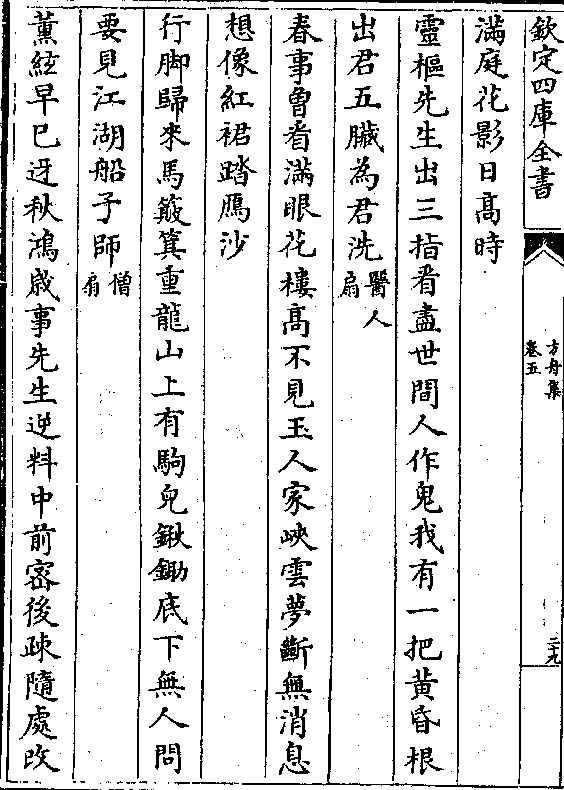 欽定四庫全書
方舟集
卷五
二十九
滿庭花影日髙時
靈樞先生出三指看盡世間人作鬼我有一把黃昏根
出君五臟為君洗醫人扇
春事曾看滿眼花樓髙不見玉人家峽雲夢斷無消息
想像紅裙踏鴈沙
行脚歸來馬簸箕重龍山上有駒兒鍬鋤底下無人問
要見江湖船子師僧扇
薫絃早已迓秋鴻歲事先生逆料中前宻後疎隨處改